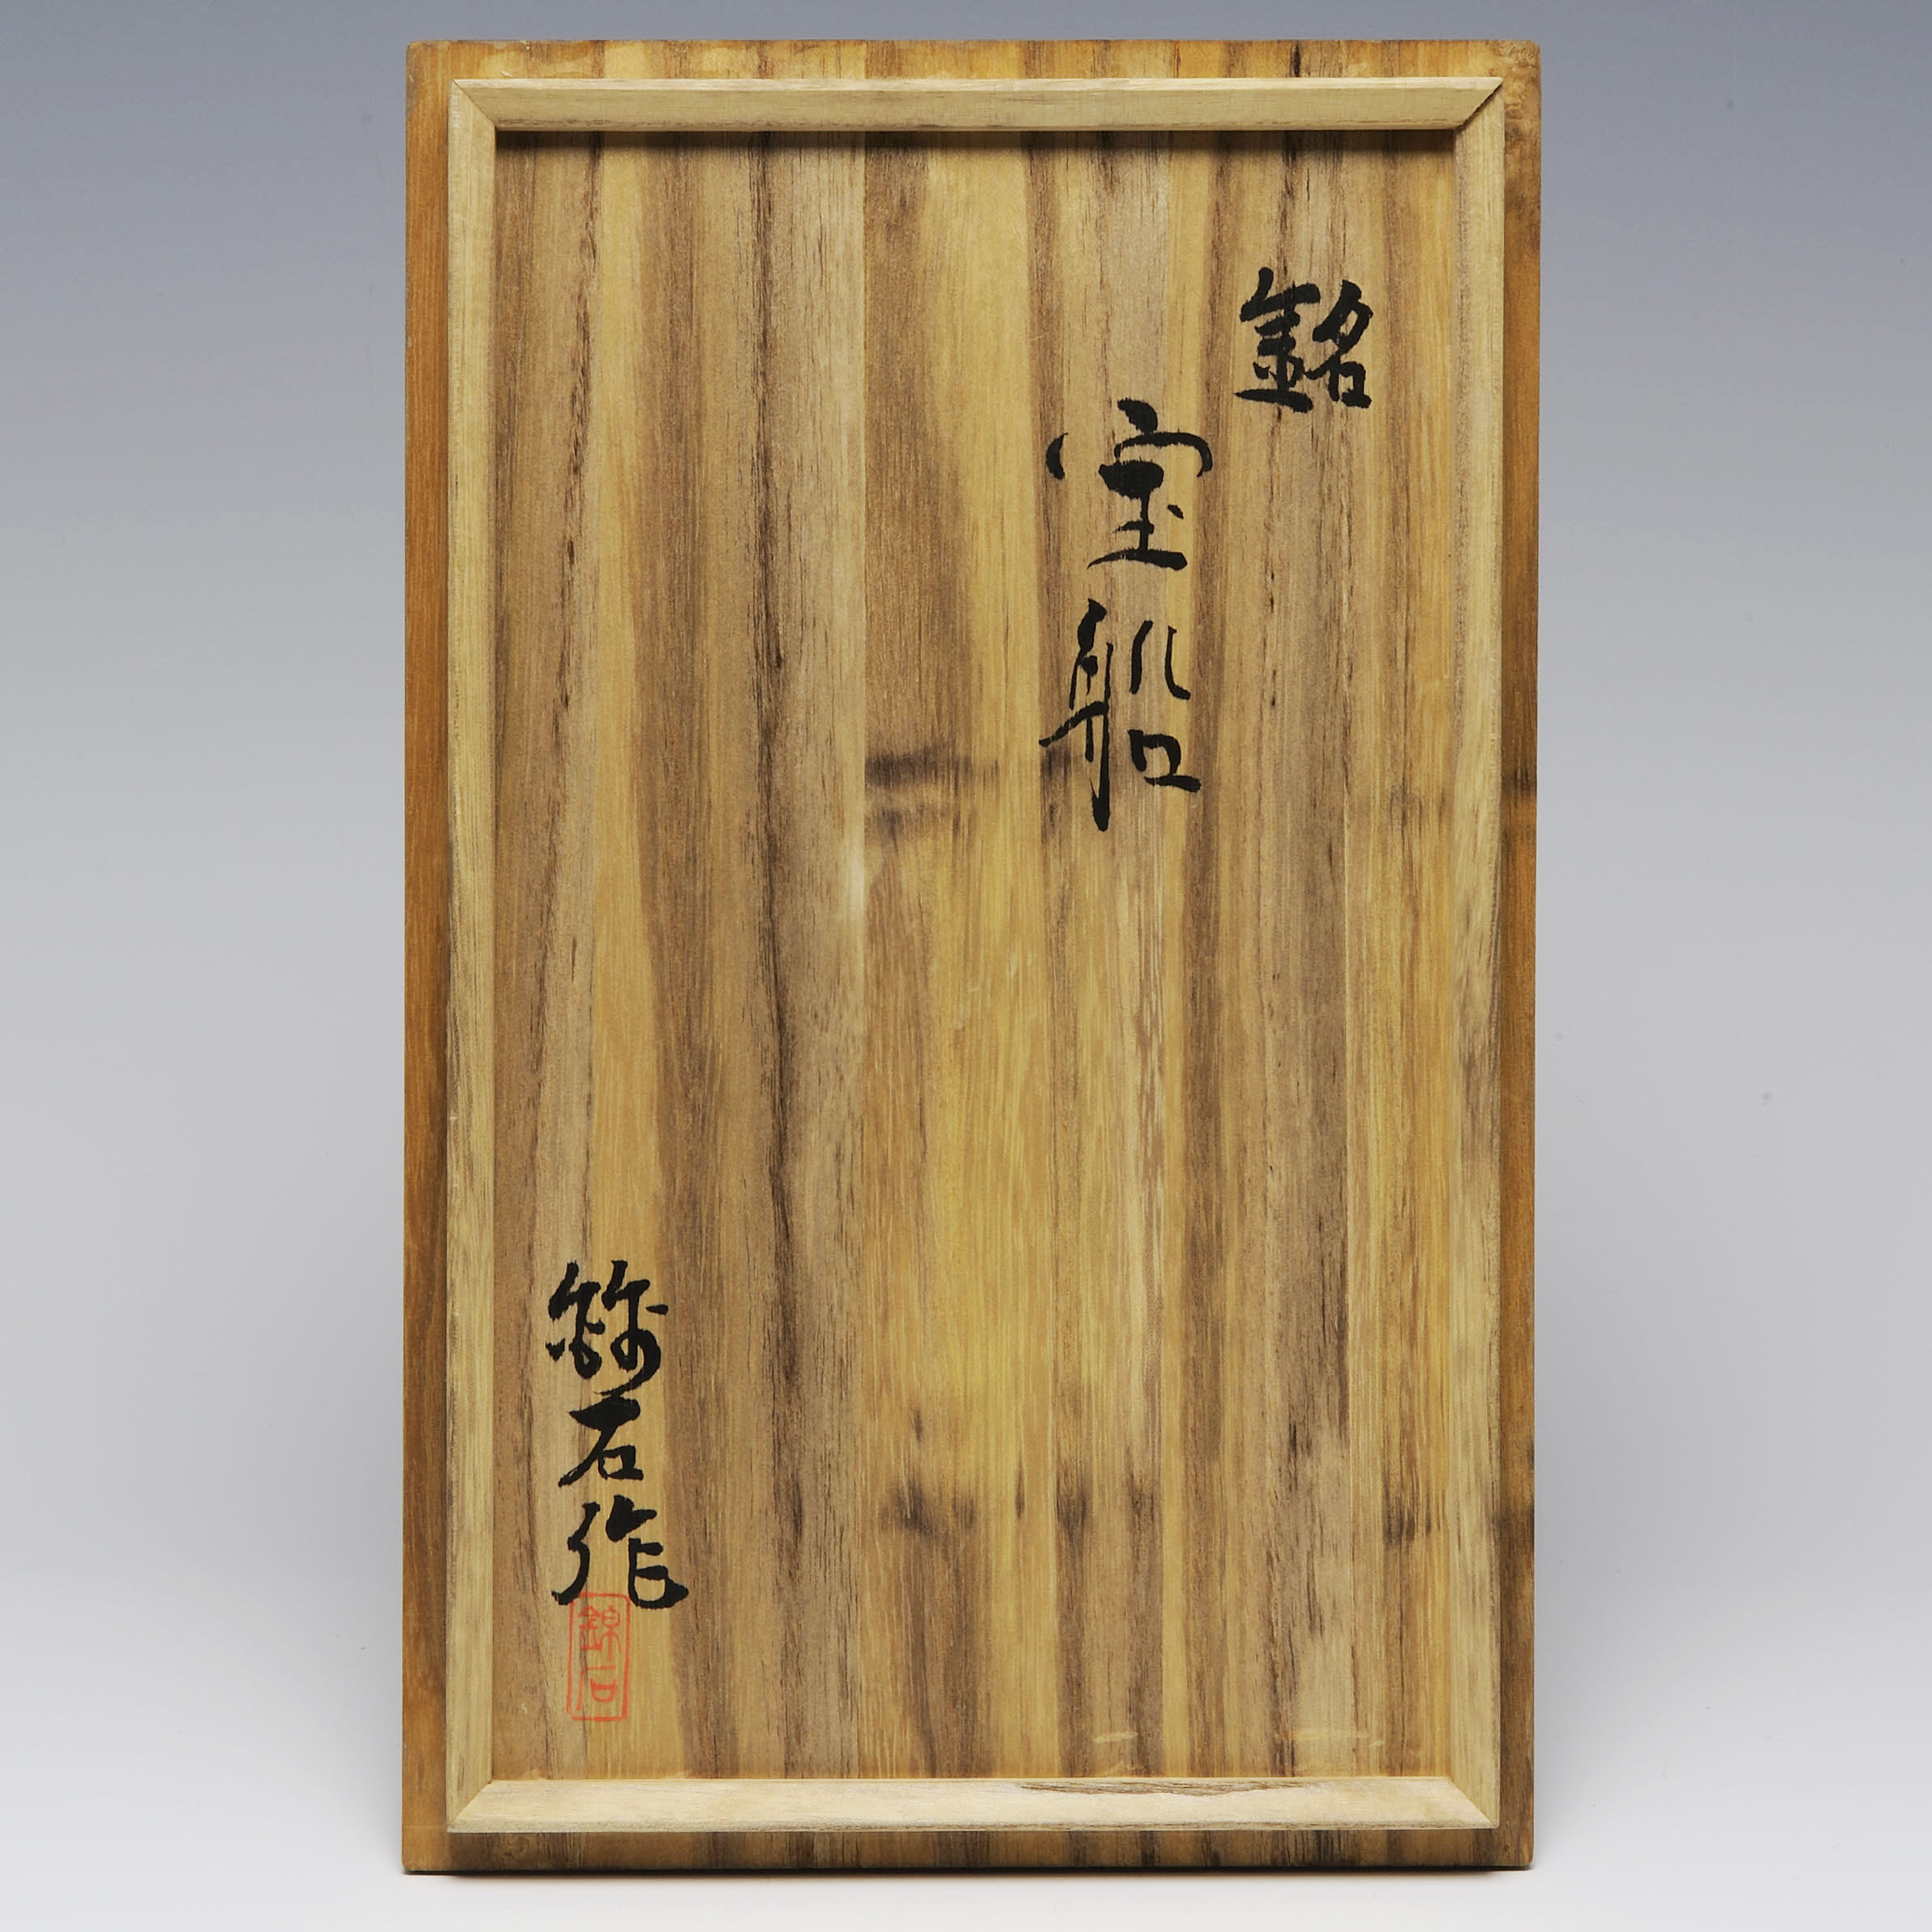 銘
宝船
錦石作
錦石